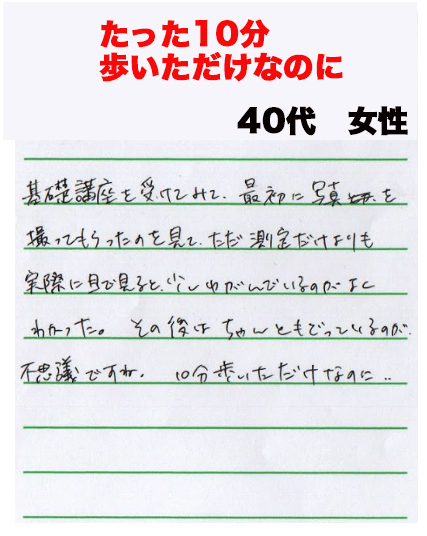 たった10分
歩いただけなのに
40代 女性
基礎講座を受けてみて、最初に写真を
撮ってもらったのを見て、ただ測定だけよりも
実際に目で見ると、少しゆがんでいるのがよく
わかった。その後はちゃんともどっているのが、
不思議ですね。10分歩いただけなのに‥